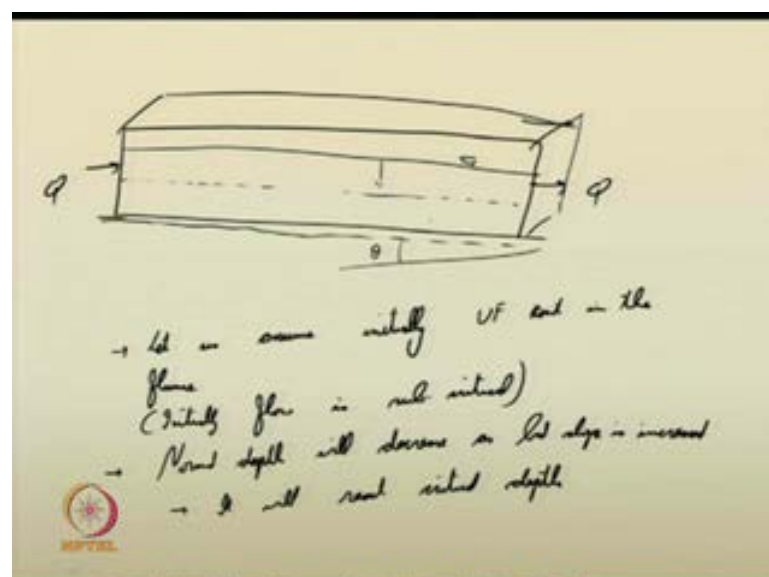 Q
Q
θ
→ Let us assume initially UF exist in the
flume
(Initially flow is sub critical)
→ Normal depth will decrease as bed slope is increased
→ It will reach critical depth
NPTEL